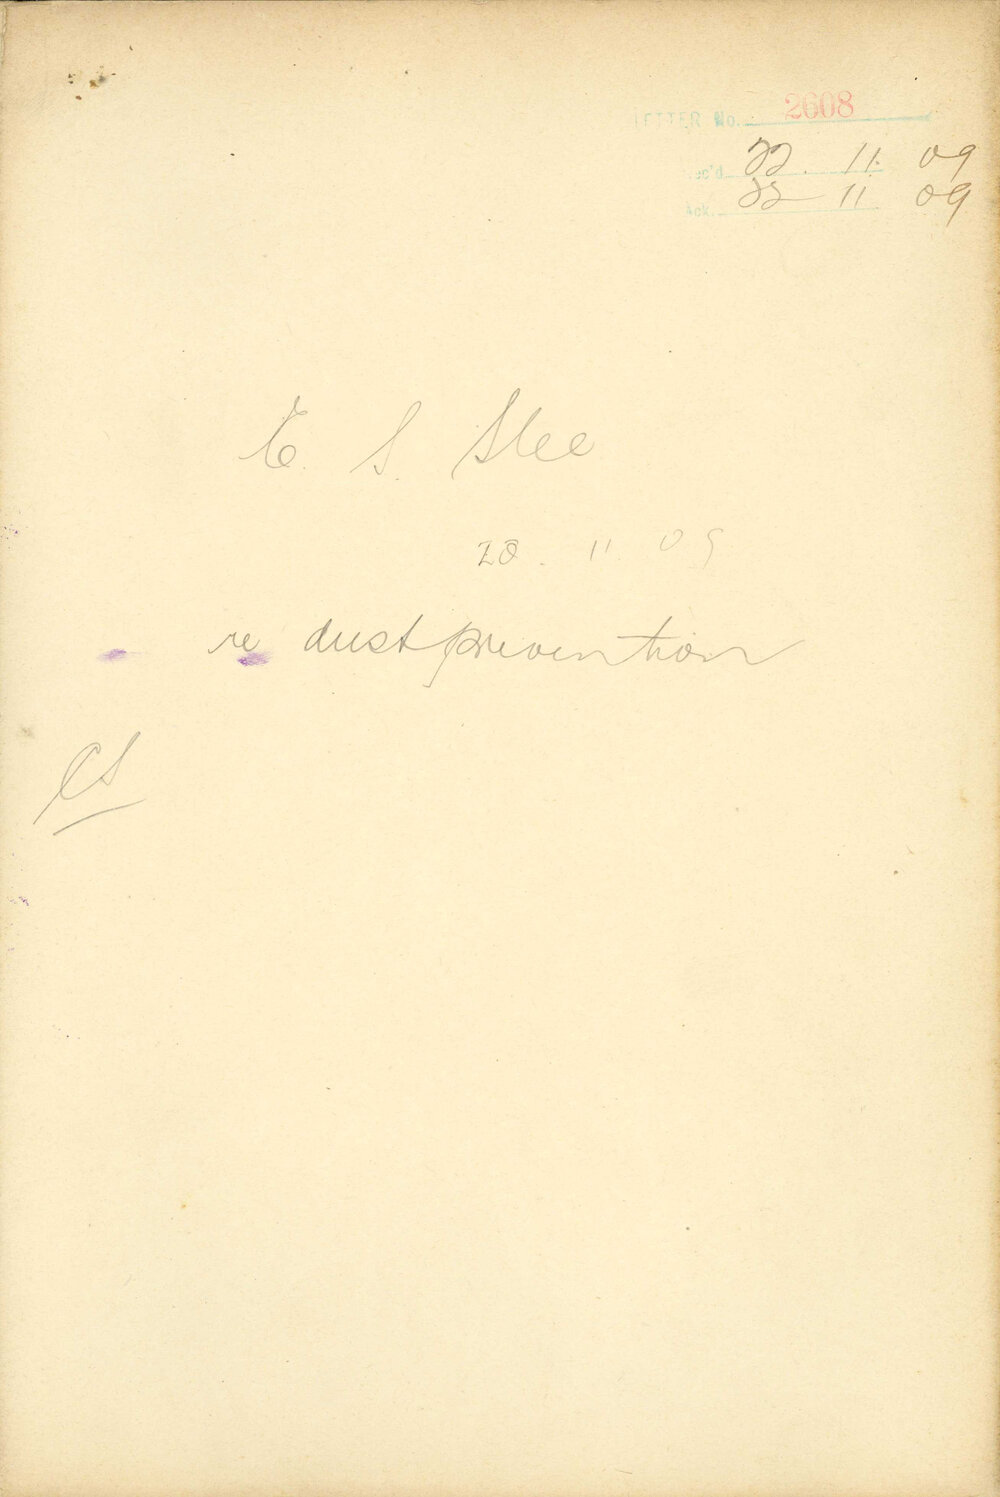 LETTER No. 2608
Rec'd. 22. 11. 09
Ack. 22 11 09
E. S. Slee
20. 11. 09
re dust prevention
CS